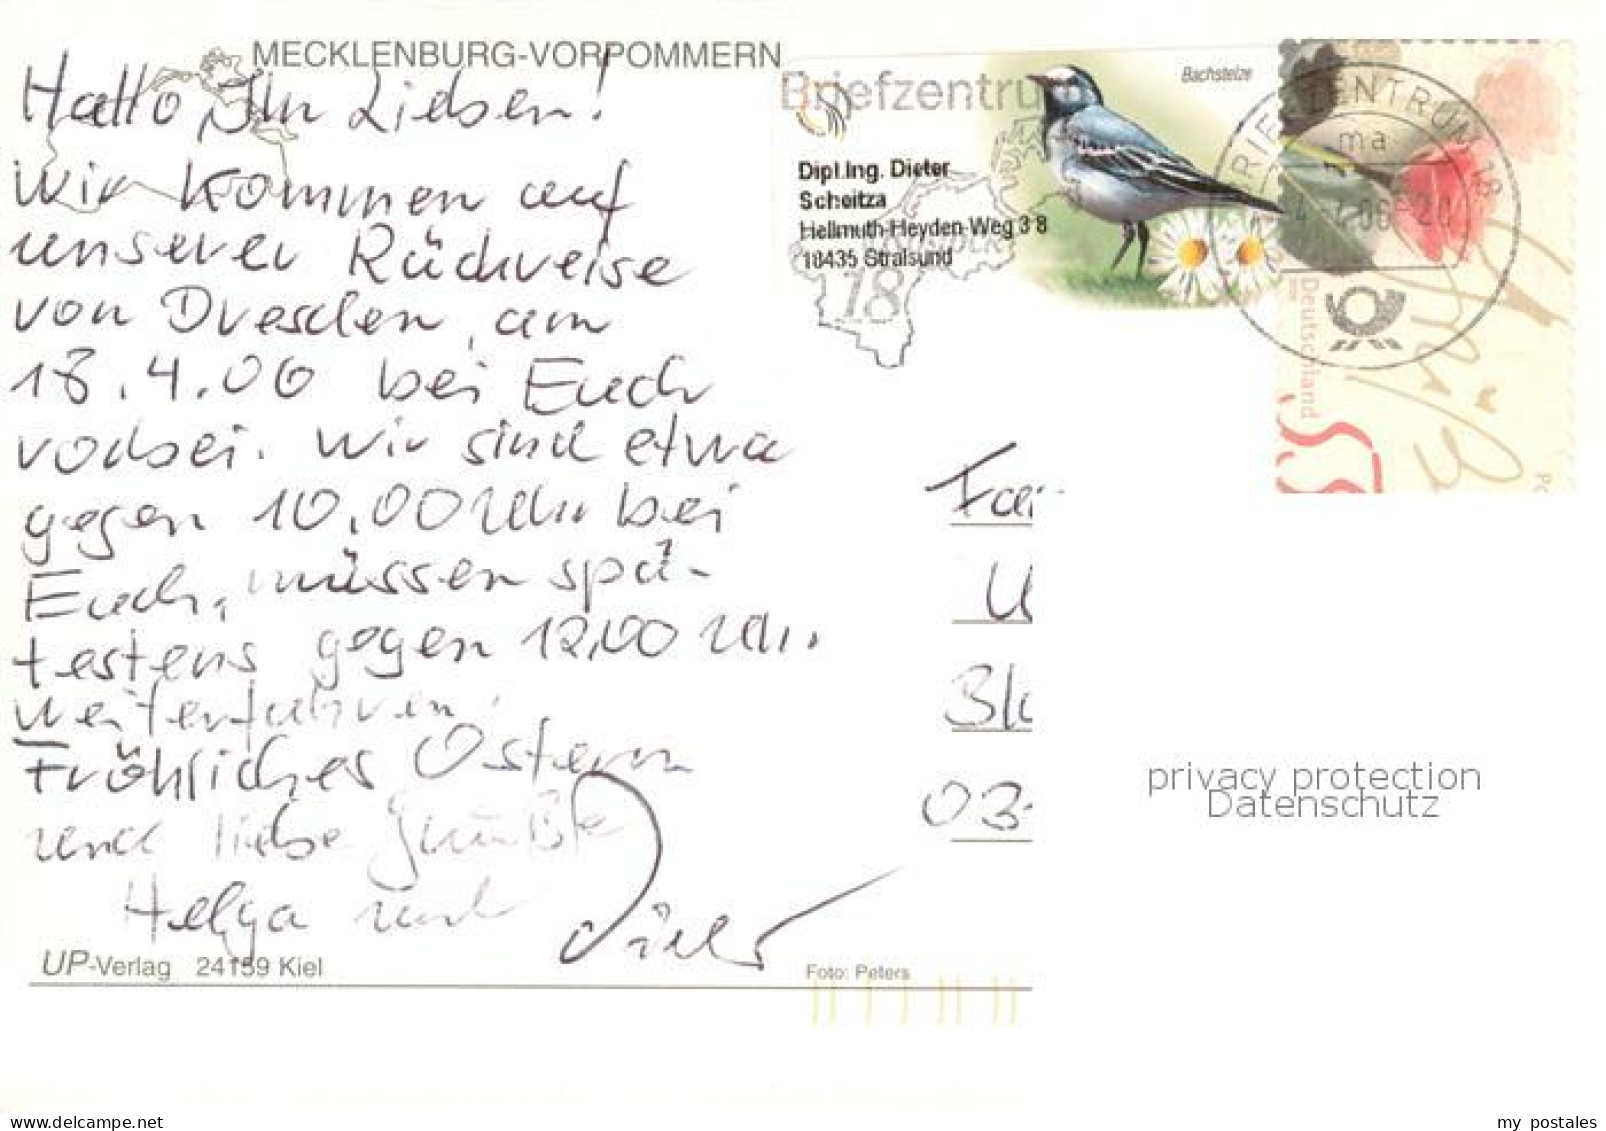 MECKLENBURG-VORPOMMERN
Hallo Ihr Lieben!
Wir kommen auf
unserer Rückreise
von Dresden, am
18.4.06 bei Euch
vorbei. Wir sind etwa
gegen 10.00 Uhr bei
Euch, müssen spä-
testens gegen 12.00 Uhr.
weiterfahren.
Fröhliches Ostern
und liebe Grüße
Helga und Dieter
UP-Verlag 24159 Kiel
Foto: Peters
Briefzentrum
18
Bachstelze
Dipl.Ing. Dieter
Scheitza
Hellmuth-Heyden-Weg 38
18435 Stralsund
BRIEFZENTRUM 18
ma
Deutschland
Fa
U
Bl
03
privacy protection
Datenschutz
my postales
www.delcampe.net